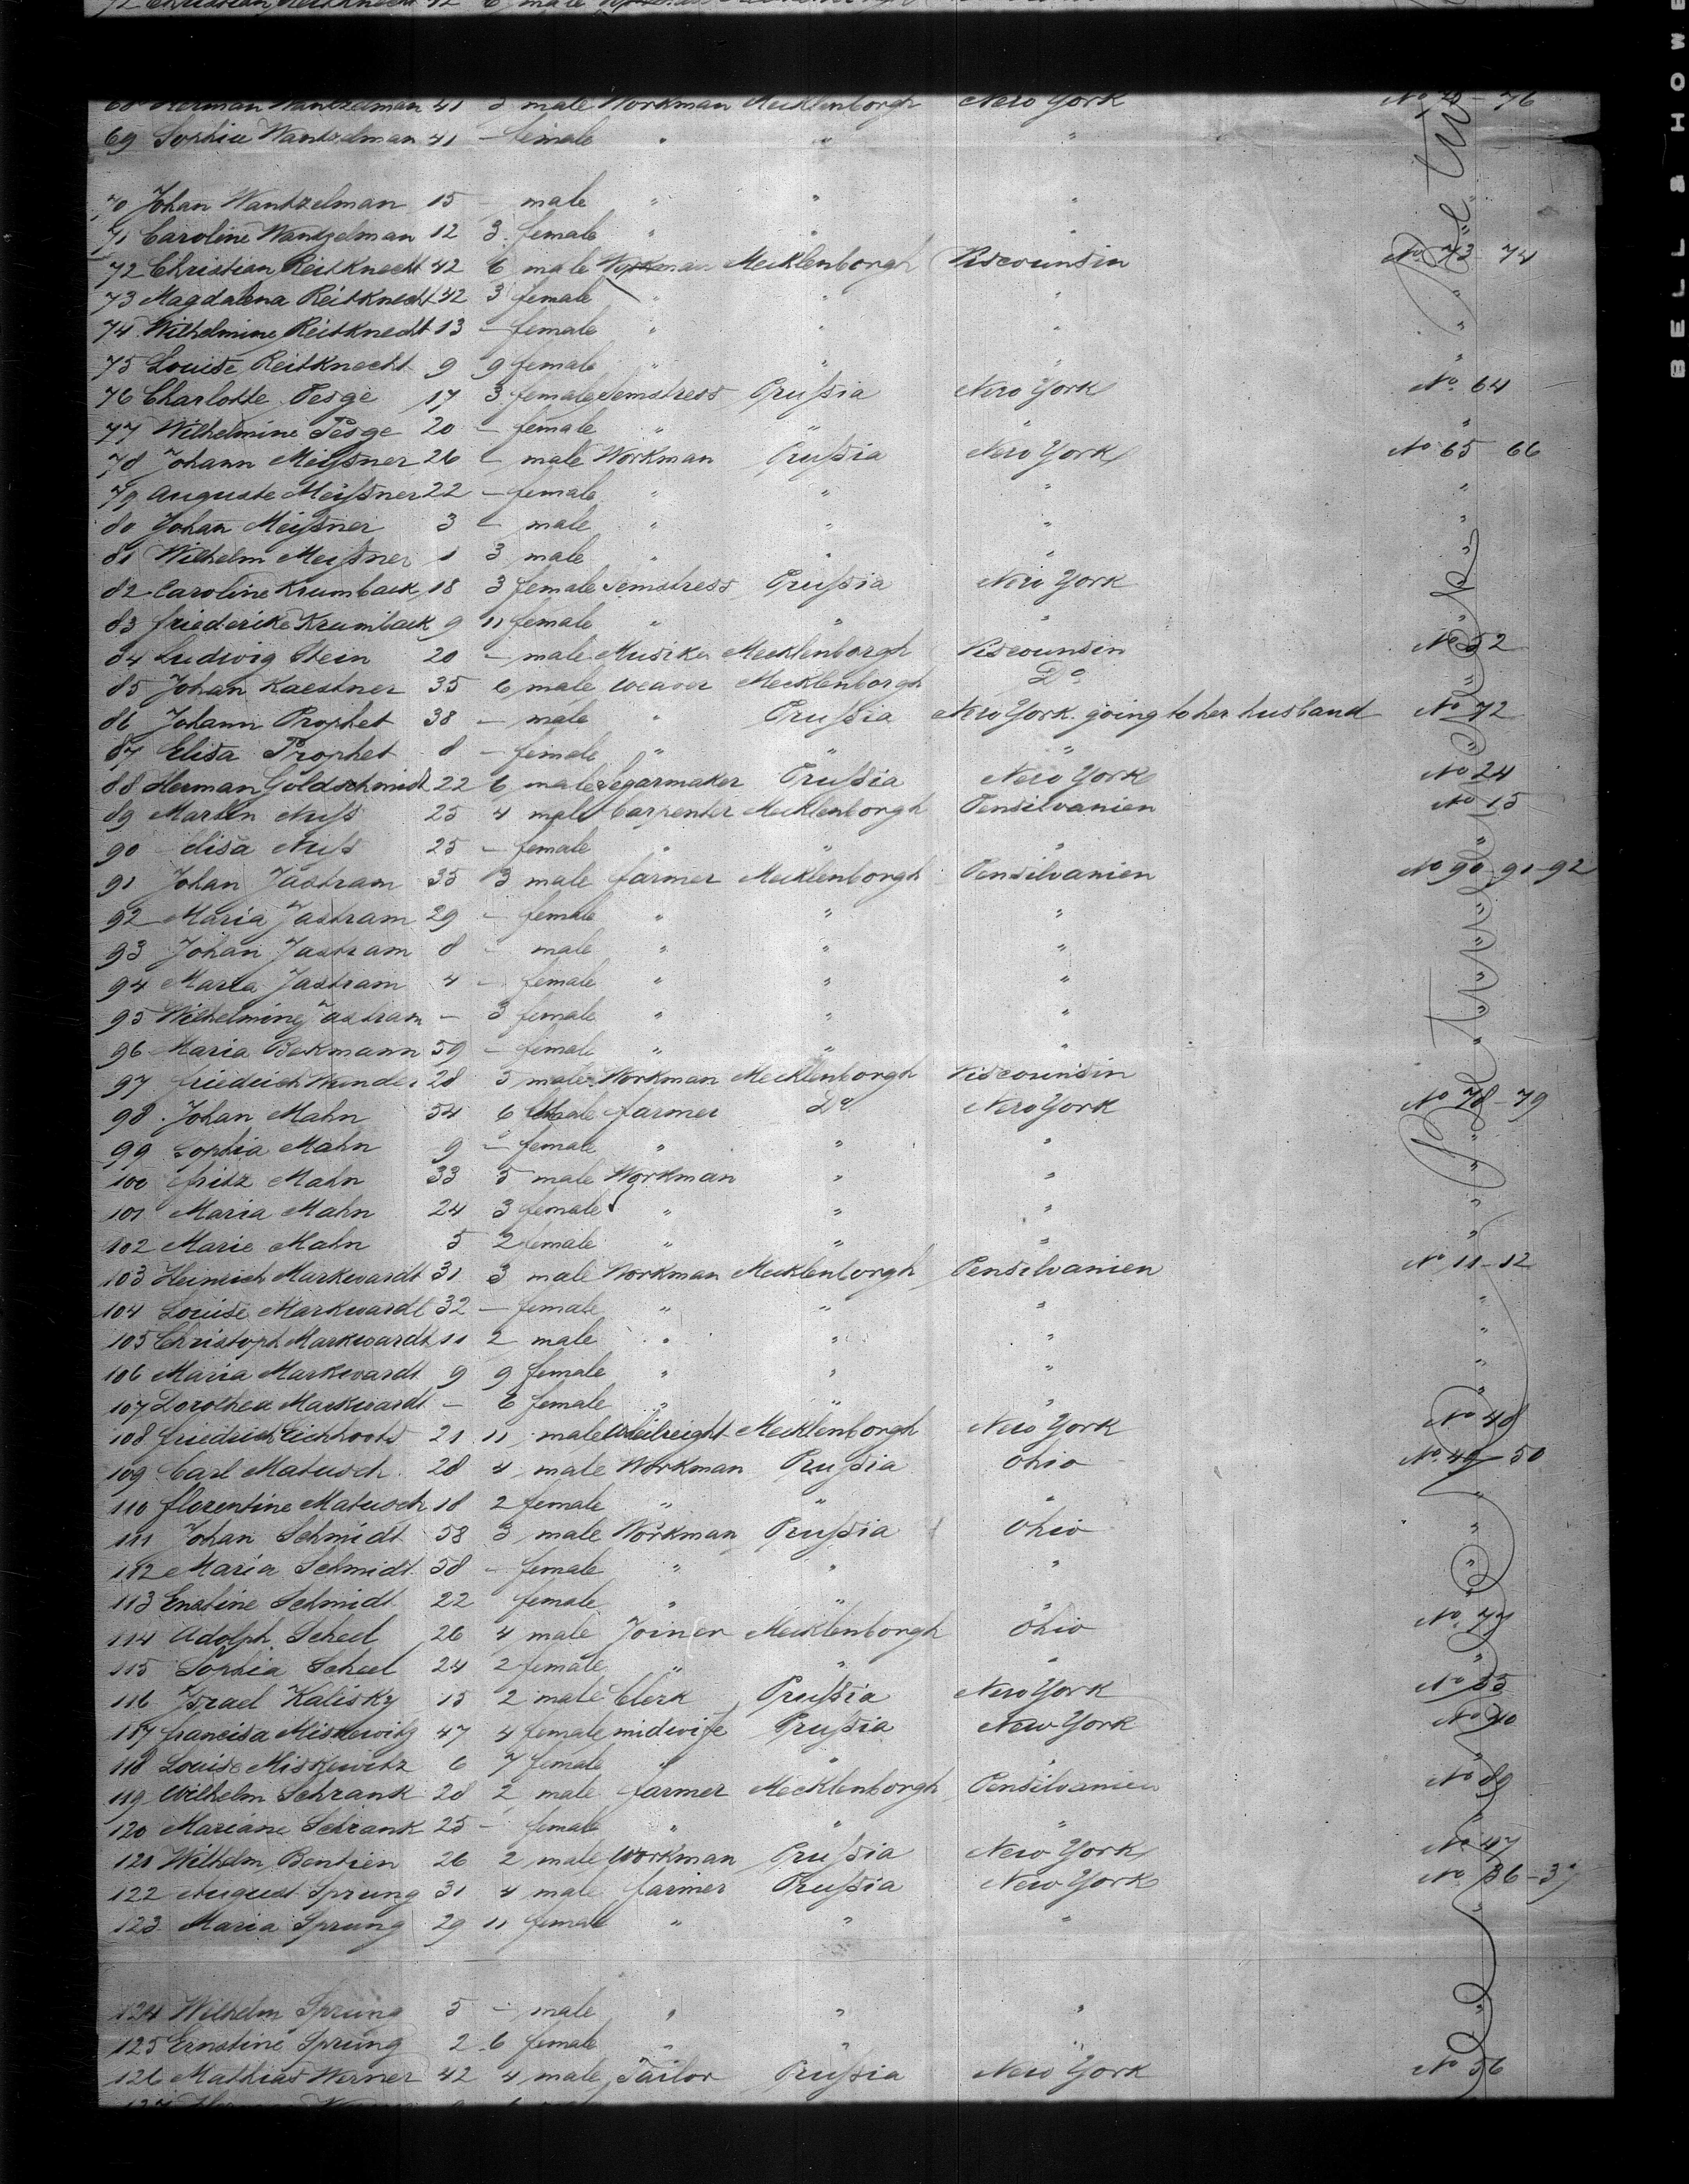 72 Christian Reitknecht 42 6 male
68 Herman Wantzelman 41 3 male Workman Mecklenborgh New York No 75-76
69 Sophia Wantzelman 41 - female " " "
70 Johan Wantzelman 15 - male " " "
71 Caroline Wantzelman 12 3 female " " "
72 Christian Reitknecht 42 6 male Workman Mecklenborgh Viscounsin No 73-74
73 Magdalena Reitknecht 42 3 female " " " "
74 Wilhelmine Reitknecht 13 - female " " " "
75 Louise Reitknecht 9 9 female " " " "
76 Charlotte Pesge 17 3 female Semstress Prußia New York No 64
77 Wilhelmine Pesge 20 - female " " " "
78 Johann Meißner 26 - male Workman Prußia New York No 65-66
79 Auguste Meißner 22 - female " " " "
80 Johan Meißner 3 - male " " " "
81 Wilhelm Meißner 1 3 male " " " "
82 Caroline Krumback 18 3 female Semstress Prußia New York
83 Friederike Krumback 9 11 female " " "
84 Ludwig Stein 20 - male Musiker Mecklenborgh Viscounsin No 52
85 Johan Kaestner 35 6 male weaver Mecklenborgh Do
86 Johann Prophet 38 - male " Prußia New York. going to her husband No 72
87 Elisa Prophet 8 - female " " " "
88 Herman Goldschmidt 22 6 male Segarmaker Prußia New York No 24
89 Martin Nuß 25 4 male Carpenter Mecklenborgh Pensilvanien No 15
90 Elisa Nuß 25 - female " " " "
91 Johan Jastram 35 3 male farmer Mecklenborgh Pensilvanien No 90-91-92
92 Maria Jastram 29 - female " " " "
93 Johan Jastram 8 - male " " " "
94 Maria Jastram 4 - female " " " "
95 Wilhelmine Jastram - 3 female " " " "
96 Maria Bekmann 59 - female " " " "
97 Friedrich Wender 28 5 male Workman Mecklenborgh Viscounsin
98 Johan Mahn 54 6 male farmer Do New York No 78-79
99 Sophia Mahn 9 - female " " " "
100 Fritz Mahn 33 5 male Workman " " "
101 Maria Mahn 24 3 female " " " "
102 Marie Mahn 5 2 female " " " "
103 Heinrich Markwardt 31 3 male Workman Mecklenborgh Pensilvanien No 11-12
104 Louise Markwardt 32 - female " " " "
105 Christoph Markwardt 11 2 male " " " "
106 Maria Markwardt 9 9 female " " " "
107 Dorothea Markwardt - 6 female " " " "
108 Friedrich 21 11 male Wheilreight Mecklenborgh New York No 48
109 Carl Matusch 28 4 male Workman Prußia Ohio No 49-50
110 Florentine Matusch 18 2 female " " " "
111 Johan Schmidt 58 3 male Workman Prußia Ohio "
112 Maria Schmidt 58 - female " " " "
113 Enstine Schmidt 22 female " " " "
114 Adolph Scheel 26 4 male Joiner Mecklenborgh Ohio No 77
115 Sophia Scheel 24 2 female " " " "
116 Israel Kalisky 15 2 male Clerk Prußia New York No 35
117 Francisa Miskewitz 47 4 female midwife Prußia New York No 40
118 Louise Miskewitz 6 7 female " " " "
119 Wilhelm Schrank 28 2 male farmer Mecklenborgh Pensilvanien No 89
120 Mariane Schrank 25 - female " " " "
121 Wilhelm Bentien 26 2 male Workman Prußia New York No 47
122 August Sprung 31 4 male farmer Prußia New York No 36-37
123 Maria Sprung 29 11 female " " " "
124 Wilhelm Sprung 5 - male " " " "
125 Ernstine Sprung 2 6 female " " "
126 Mathias Werner 42 4 male Tailor Prußia New York No 56
BELL & HOWE